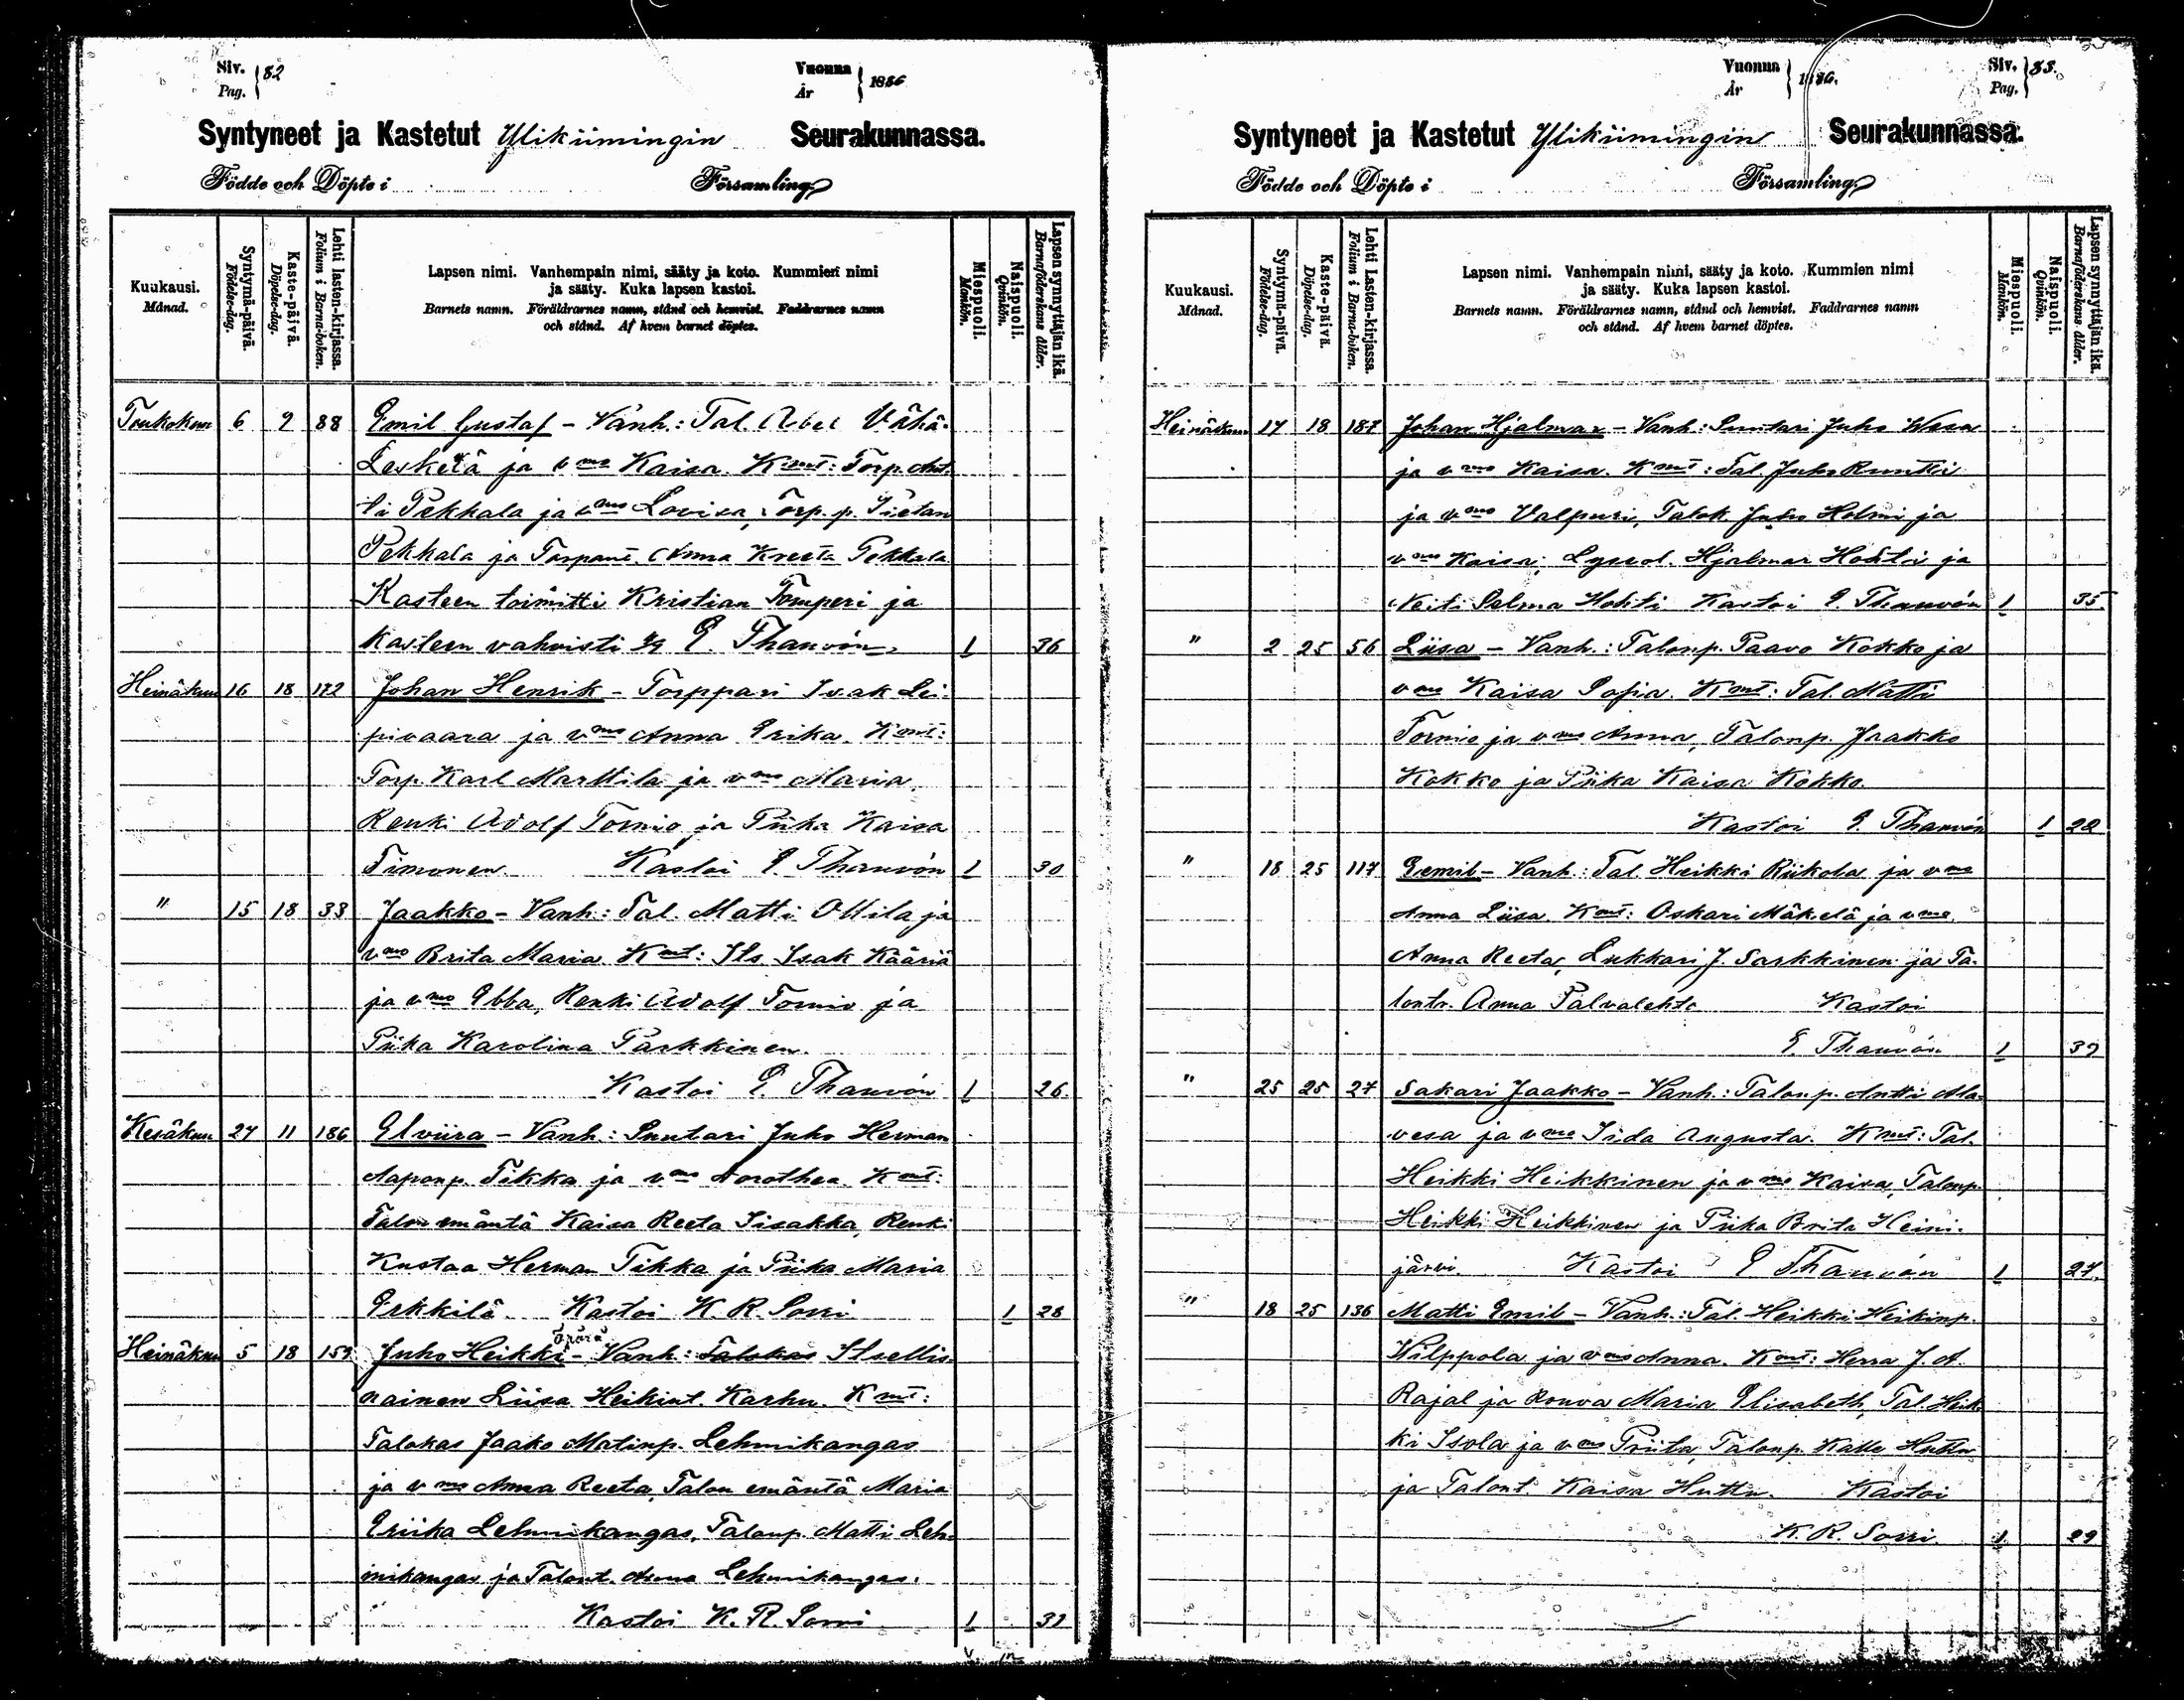 Siv. Pag. } 82
Vuonna År } 1886
Syntyneet ja Kastetut Ylikiimingin Seurakunnassa.
Födde och Döpte i Församling
Kuukausi. Månad.
Syntymä-päivä. Födelse-dag.
Kaste-päivä. Döpelse-dag.
Lehti lasten-kirjassa. Folium i Barna-boken.
Lapsen nimi. Vanhempain nimi, sääty ja koto. Kummien nimi
ja sääty. Kuka lapsen kastoi.
Barnets namn. Föräldrarnes namn, stånd och hemvist. Faddrarnes namn
och stånd. Af hvem barnet döptes.
Miespuoli. Mankön.
Naispuoli. Qvinkön.
Lapsen synnyttäjän ikä. Barnaföderskans ålder.
Toukokuu 6 9 88 Emil Gustaf - Vanh.: Tal. Abel Vähä-
Leskelä ja vmo Kaisa. Kmt: Torp. Ant-
ti Pekkala ja vmo Lovisa, Torp. p. Pietari
Pekkala ja Torpant. Anna Kreeta Pekkala
Kasteen toimitti Kristian Tomperi ja
kasteen vahvisti E. Thauvón. 1 36
Heinäkuu 16 18 172 Johan Henrik - Torppari Isak Lei-
pivaara ja vmo Anna Erika. Kmt:
Torp. Karl Marttila ja vmo Maria,
Renki Adolf Tornio ja Piika Kaisa
Timonen. Kastoi E. Thauvón 1 30
" 15 18 33 Jaakko - Vanh: Tal. Matti Ollila ja
vmo Brita Maria. Kmt: Its. Isak Kääriä
ja vmo Ebba, Renki Adolf Tornio ja
Piika Karolina Parkkinen.
Kastoi E. Thauvón 1 26.
Kesäkuu 27 11 186 Elviira - Vanh: Suutari Juho Herman
Aaponp. Tikka ja vmo Dorothea. Kmt:
Talon emäntä Kaisa Reeta Iisakka, Renki
Kustaa Herman Tikka ja Piika Maria
Erkkilä. Kastoi K. R. Sorri 1 28
Heinäkuu 5 18 159 Juho Heikki - Vanh: Talokas Itsellis
nainen Liisa Heikint. Karhu. Kmt:
Talokas Jaako Matinp. Lehmikangas
ja vmo Anna Reeta, Talon emäntä Maria
Eriika Lehmikangas, Talonp. Matti Leh-
mikangas ja Talont. Anna Lehmikangas.
Kastoi K. R. Sorri 1
Vuonna År } 1886.
Siv. Pag. } 83.
Syntyneet ja Kastetut Ylikiimingin Seurakunnassa.
Födde och Döpte i Församling.
Kuukausi. Månad.
Syntymä-päivä. Födelse-dag.
Kaste-päivä. Döpelse-dag.
Lehti Lasten-kirjassa. Folium i Barna-boken.
Lapsen nimi. Vanhempain nimi, sääty ja koto. Kummien nimi
ja sääty. Kuka lapsen kastoi.
Barnets namn. Föräldrarnes namn, stånd och hemvist. Faddrarnes namn
och stånd. Af hvem barnet döptes.
Miespuoli. Mankön.
Naispuoli. Qvinkön.
Lapsen synnyttäjän ikä. Barnaföderskans ålder.
Heinäkuu 17 18 187 Johan Hjalmar - Vanh: Suutari Juho Wesa
ja vmo Kaisa. Kmt: Tal. Juho Runtti
ja vmo Valpuri, Talok. Juho Holmi ja
vmo Kaisa; Lyseol. Hjalmar Hohti ja
Neiti Selma Hohti Kastoi E. Thauvón 1 35.
" 2 25 56 Liisa - Vanh: Talonp. Paavo Kokko ja
vmo Kaisa Sofia. Kmt: Tal. Matti
Tornio ja vmo Anna, Talonp. Jaakko
Kokko ja Piika Kaisa Kokko.
Kastoi E. Thauvón 1 28
" 18 25 117 Eemil - Vanh: Tal. Heikki Riikola ja vmo
Anna Liisa. Kmt: Oskari Mäkelä ja vmo
Anna Reeta, Lukkari J. Sarkkinen ja Ta-
lontr. Anna Palvalehto Kastoi
E. Thauvón. 1 39
" 25 25 27 Sakari Jaakko - Vanh: Talonp. Antti Ala-
vesa ja vmo Iida Augusta. Kmt: Tal.
Heikki Heikkinen ja vmo Kaisa, Talonp.
Heikki Heikkinen ja Piika Brita Heini-
järvi. Kastoi E Thauvón 1 27.
" 18 25 136 Matti Emil - Vanh: Tal. Heikki Heikinp.
Wilppola ja vmo Anna. Kmt: Herra J. A.
Rajal ja Rouva Maria Elisabeth, Tal. Heik-
ki Isola ja vmo Priita, Talonp. Kalle Huttu
ja Talont. Kaisa Huttu. Kastoi
K. R. Sorri. 1 29